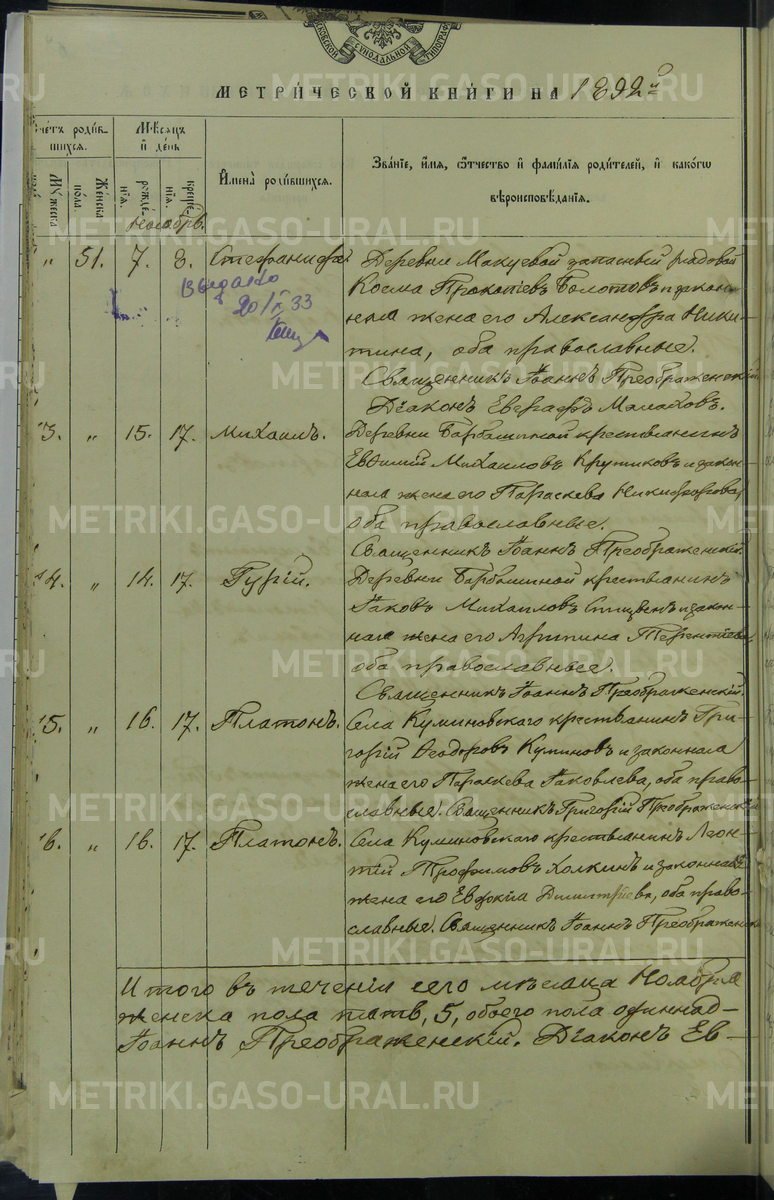 МОСКОВСКОЙ СѴНОДАЛЬНОЙ ТИПОГРАФ
МЕТРИ́ЧЕСКОЙ КНИ́ГИ НА 1892й
Счетъ роди́вшихся.
Мѣсяцъ и день
И҆мена̀ роди́вшихся.
Зва́нїе, и҆́мя, ѻ҆́тчество и҆ фами́лїя роди́телей, и҆ како́гѡ
вѣроисповѣ́данїя.
Му́жеска
Же́нска по́ла.
рожде́нїя.
креще́нїя.
Ноябрь.
„ 51. 7. 8. Стефанида
Деревни Макуевой запасный рядовой
Косма Прокопіевъ Болотовъ и закон-
ная жена его Александра Ники-
тина, оба православные.
Священникъ Іоаннъ Преображенскій
Діаконъ Евграфъ Малаховъ.
Выдано
20/X 33
3. „ 15. 17. Михаилъ.
Деревни Барбашиной крестьянинъ
Евѳимій Михаиловъ Крутиковъ и закон-
ная жена его Параскева Никифорова,
оба православные.
Священникъ Іоаннъ Преображенскій.
14. „ 14. 17. Гурій.
Деревни Барбашиной крестьянинъ
Іаковъ Михаиловъ и закон-
ная жена его Агрипина Терентіева,
оба православные.
Священникъ Іоаннъ Преображенскій.
15. „ 16. 17. Платонъ.
Села Куминовскаго крестьянинъ Гри-
горій Ѳеодоровъ Куминовъ и законная
жена его Параскева Іаковлева, оба право-
славные. Священникъ Григорій Преображенскій
16. „ 16. 17. Платонъ.
Села Куминовскаго крестьянинъ Леон-
тій Трофимовъ Холкинъ и законная
жена его Евдокія Димитріева, оба право-
славные. Священникъ Іоаннъ Преображенск
Итого въ теченіи сего мѣсяца Ноября
женска пола пять, 5, обоего пола одиннад-
Іоаннъ Преображенскій. Діаконъ Ев-
METRIKI.GASO-URAL.RU